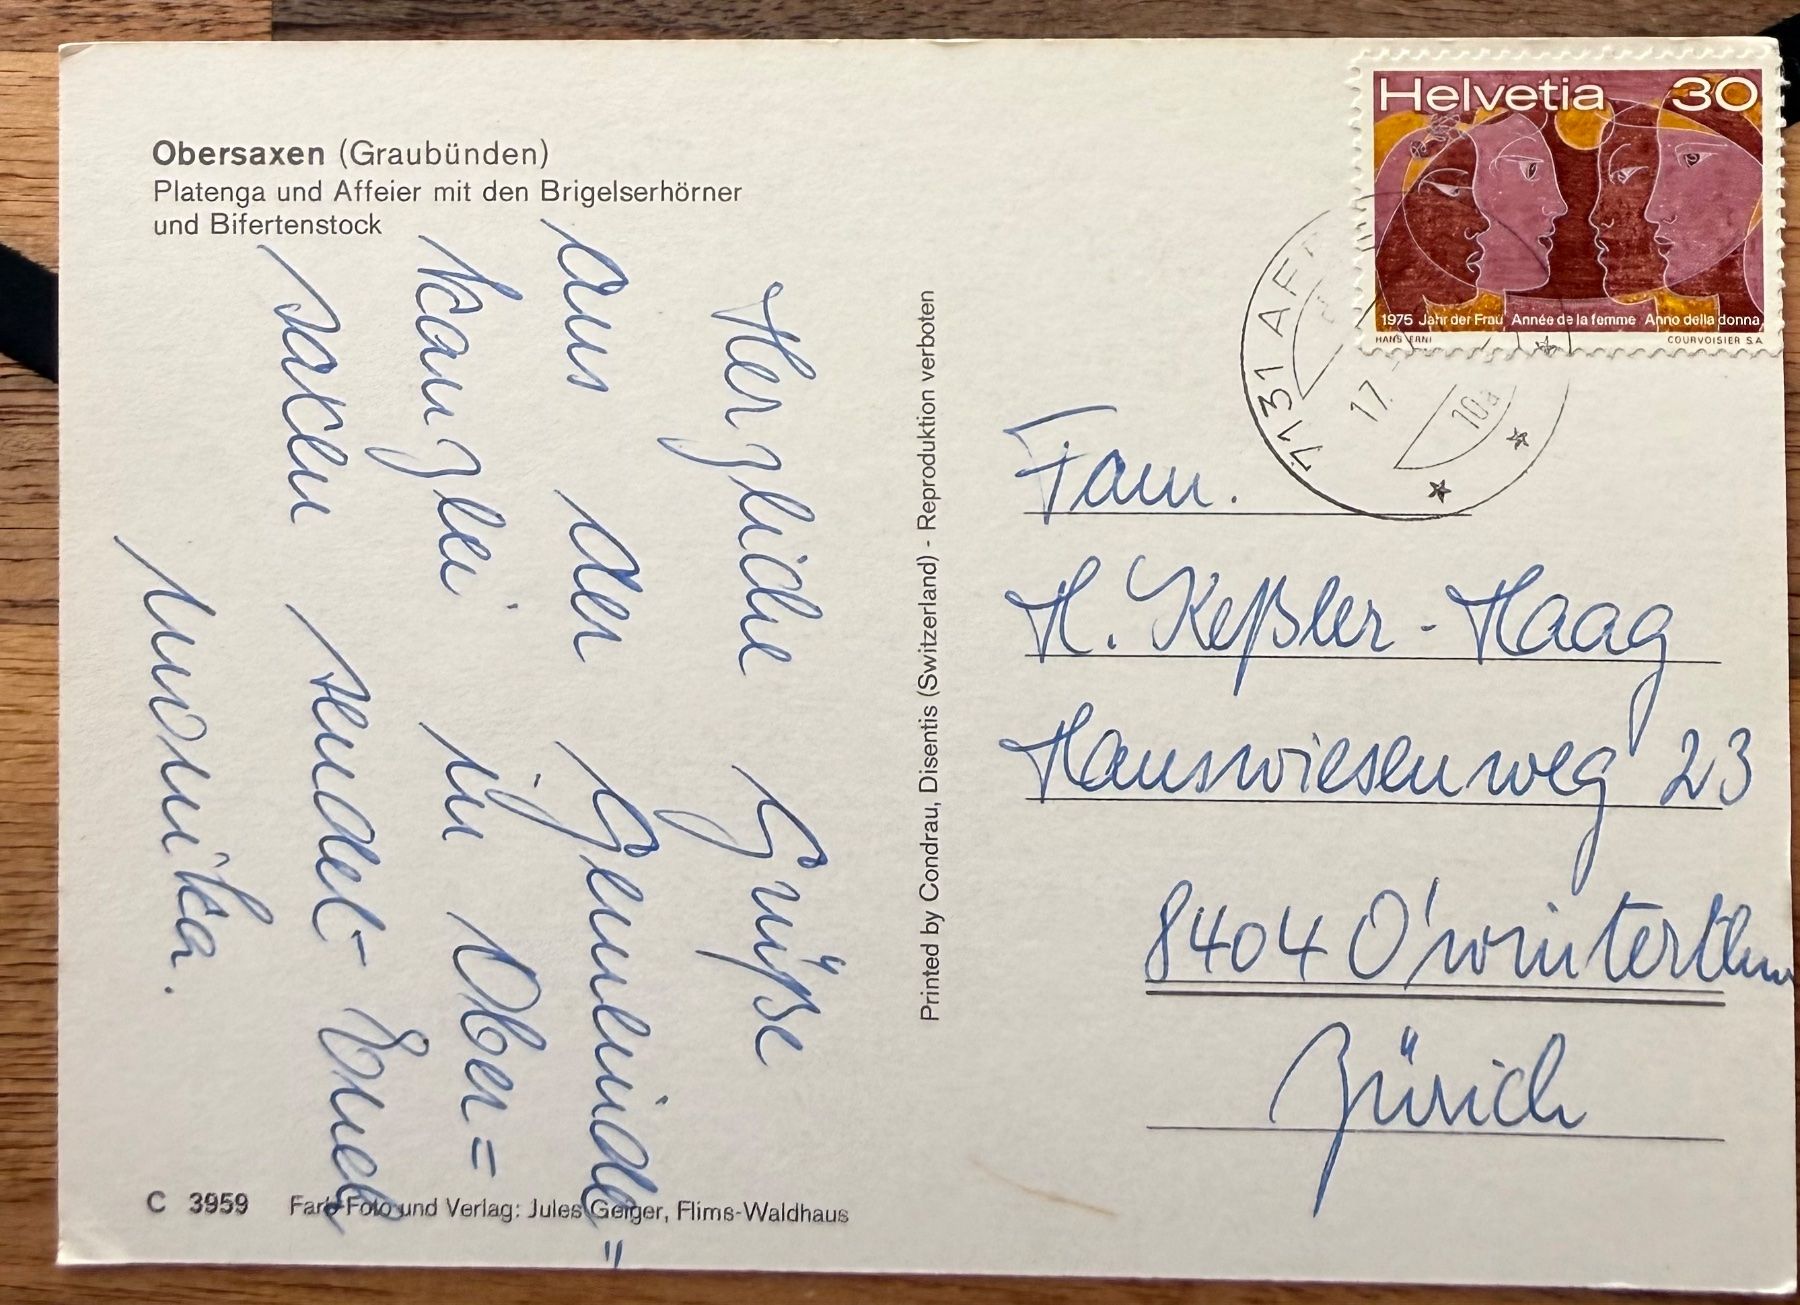 Obersaxen (Graubünden)
Platenga und Affeier mit den Brigelserhörner
und Bifertenstock
Herzliche Grüße
aus der Gemeinde=
kanzlei in Ober=
saxen sendet Euch
Monika.
C 3959 Farb-Foto und Verlag: Jules Geiger, Flims-Waldhaus
Printed by Condrau, Disentis (Switzerland) - Reproduktion verboten
Helvetia 30
1975 Jahr der Frau Année de la femme Anno della donna
HANS ERNI COURVOISIER S.A.
7131 AF
17.
10a
Fam.
H. Keßler-Haag
Hauswiesenweg 23
8404 O'winterthur
Zürich